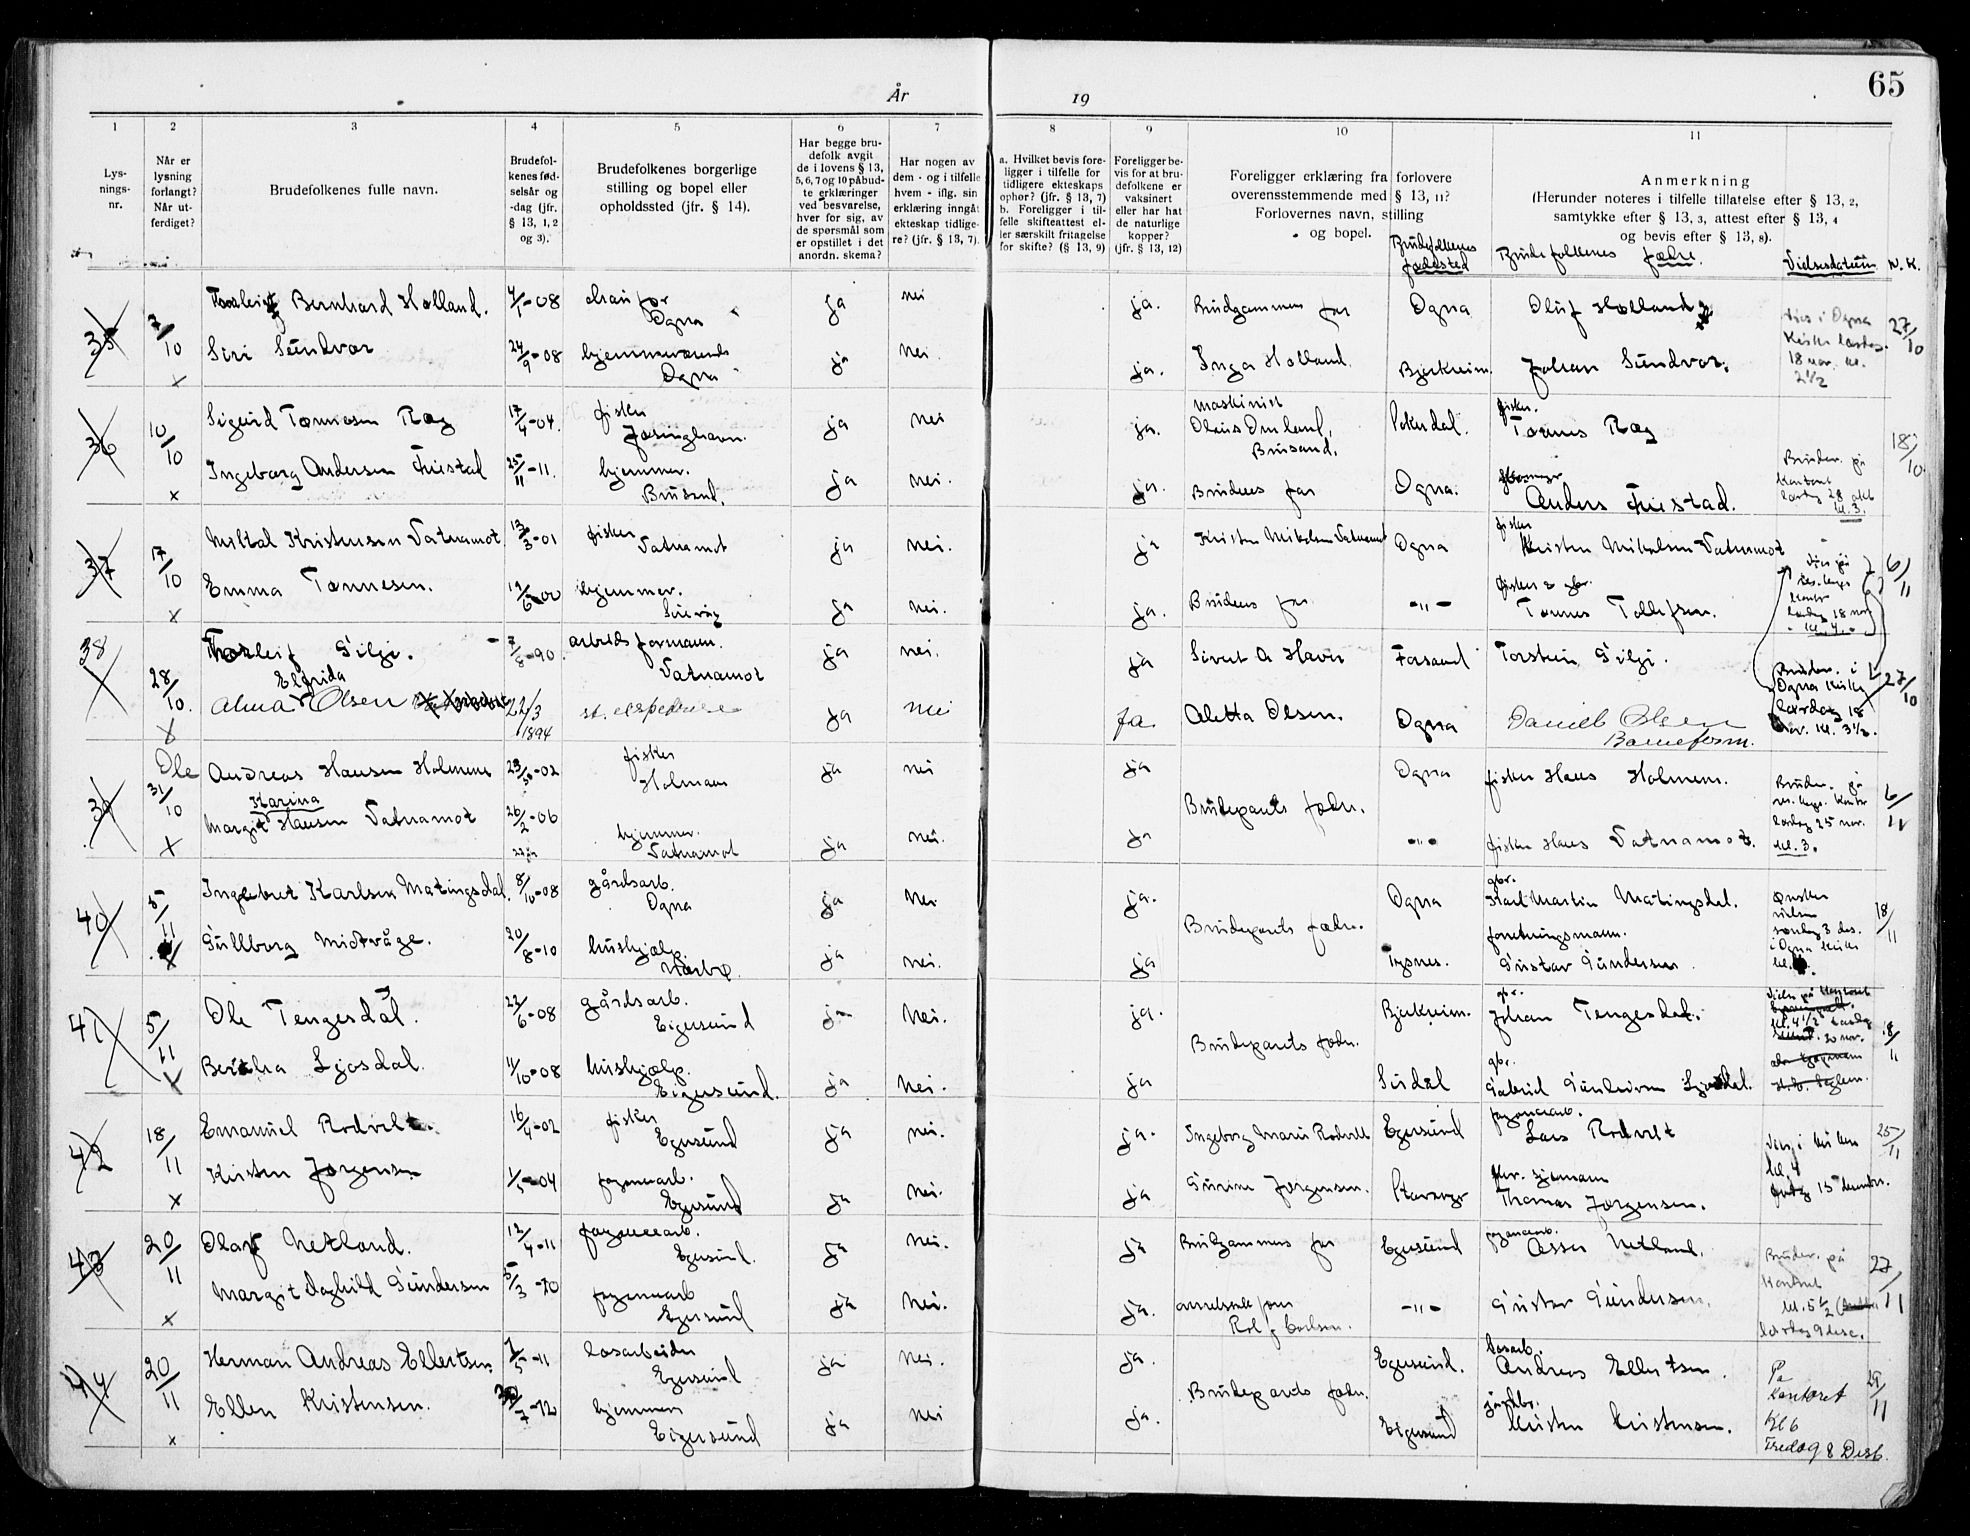 65
År 19
1 2 3 4 5 6 7 8 9 10 11
Lys-
nings-
nr.
Når er
lysning
forlangt?
Når ut-
ferdiget?
Brudefolkenes fulle navn.
Brudefol-
kenes fød-
selsår og
-dag (jfr.
§ 13, 1, 2
og 3).
Brudefolkenes borgerlige
stilling og bopel eller
opholdssted (jfr. § 14).
Har begge bru-
defolk avgit
de i lovens § 13,
5, 6, 7 og 10 påbud-
te erklæringer
ved besvarelse,
hver for sig, av
de spørsmål som
er opstillet i det
anordn. skema?
Har nogen av
dem - og i tilfelle
hvem - iflg. sin
erklæring inngåt
ekteskap tidlige-
re? (jfr. § 13, 7).
a. Hvilket bevis fore-
ligger i tilfelle for
tidligere ekteskaps
ophør? (jfr. § 13, 7)
b. Foreligger i til-
felle skifteattest el-
ler særskilt fritagelse
for skifte? (§ 13, 9)
Foreligger be-
vis for at bru-
defolkene er
vaksinert
eller har hat
de naturlige
kopper?
(jfr. § 13, 12)
Foreligger erklæring fra forlovere
overensstemmende med § 13, 11?
Forlovernes navn, stilling
og bopel.
Brudefolkenes
fødested
Anmerkning
(Herunder noteres i tilfelle tillatelse efter § 13, 2,
samtykke efter § 13, 3, attest efter § 13, 4
og bevis efter § 13, 8).
Brudefolkenes fedre.
Vielsesdatum
N. K.
35 7/10 Bernhard Holland. 4/1-08 chaufør Ogna ja nei ja. Brudgommens far Ogna Oluf Holland 27/10
Siri Sundvor 24/9-08 hjemmeværende Ogna ja nei. ja. Inga Holland. Bjerkreim. Johan Sundvor.
Vies i Ogna
Kirke lørdag
18 nov. kl.
2½
36 10/10 Sigurd Tønnesen Rag 17/4-04. fisker Jøsinghavn. ja nei ja. maskinist Brusand. Sokndal. fisker. Tønnes Rag 18/10
Ingeborg Andersen Fuestad 25/11-11. hjemmev. Brusand. ja nei. ja. Brudens far Ogna. Anders Fuestad.
Brudev. på
kontoret
lørdag 28 okt
kl. 3.
37 17/10 Kristensen Vatnamot 13/3-01 fisker Vatnamot ja nei. ja Kristen Mikalsen Vatnamot Ogna fisker Kristen Mikalsen Vatnamot 6/11
Emma Tønnesen. 00 hjemmev. Sirevåg ja nei. ja. Brudens far -"- fisker & gbr. Tønnes Tollefsen.
Vies på
res. kaps
kontor
lørdag 18 nov
kl. 4.
38 28/10. Thorleif Gilje. 7/8-90. arbeidsformann. Vatnamot ja nei. ja Sivert A Havn Forsand Torstein Gilje. 27/10
Elfrida
Alma Olsen 22/3 1894 st. ekspeditrise ja nei ja. Aletta Olsen. Ogna Daniel Olsen
Baneform.
Brudev. i
Ogna Kirke
lørdag 18
nov. kl. 3½.
39 31/10 Ole Andreas Hansen Holmene 02 fisker Holmam ja nei ja Brudeparets fedre. Ogna fisker Hans Holmem. 6/11
Karina
Margit Hansen Vatnamot 26/2-06 hjemmev. Vatnamot ja nei. ja -"- fisker Hans Vatnamot.
Brudev. på
res. kaps. kontor
lørdag 25 nov.
kl. 3.
40 5/11 Ingebret Karlsen Matingsdal. 8/10-08 gårdsarb. Ogna ja nei ja. Brudeparets fedre. Ogna gbr. Karl Martin Matingsdal. 18/11
Gullborg Midtvåge. 20/8-10 hushjælp Nærbø. ja nei. ja Tysnes. forretningsmann. Gustav Gundersen
Ønsker
vielsen
søndag 3 des.
i Ogna kirke
kl.
41 5/11 Ole Tengesdal. 22/6-08 gårdsarb. Eigersund ja nei. ja. Brudeparets fedre. Bjerkreim. gbr. Johan Tengesdal. 18/11
Bertha Ljosdal. 11/10-08 hushjælp. Eigersund. ja nei. ja Sirdal gbr. Gabriel Ljosdal.
Vies på kontoret
kl. 4½ lørdag
42 18/11 Emanuel Rodvelt. 16/4-02 fisker Egersund ja nei. ja. Ingeborg Marie Rodvelt Egersund fayancearb. Lars Rodvelt 25/11
Kirsten Jørgensen 1/5-04 fayancearb. Egersund ja nei. ja Gurine Jørgensen. Stavanger sjømann Thomas Jørgensen.
Vies i kirken
kl. 4
fredag 15 desember.
43 20/11 Olaf Netland. 12/4-11 fayancearb. Egersund. ja nei. ja Brudgommens far Egersund fayancearb. Asser Netland. 27/11
Margit Daghild Gundersen 5/3-10 fayancearb Egersund ja nei. ja. Rolf Carlsen. -"- Gustav Gundersen.
Brudev. på
kontoret
kl. 5½
lørdag 9 dese.
44 20/11 Herman Andreas Ellertsen. 7/5-11 løsarbeider Egersund ja nei. ja. Brudeparets fedre. Egersund. løsarb. Andreas Ellertsen. 29/11
Ellen Kristensen. 12 hjemmev Eigersund ja nei ja. Eigersund gårdbr. Kristen Kristensen.
På
kontoret
Kl 6
Fredag 8 Desb.